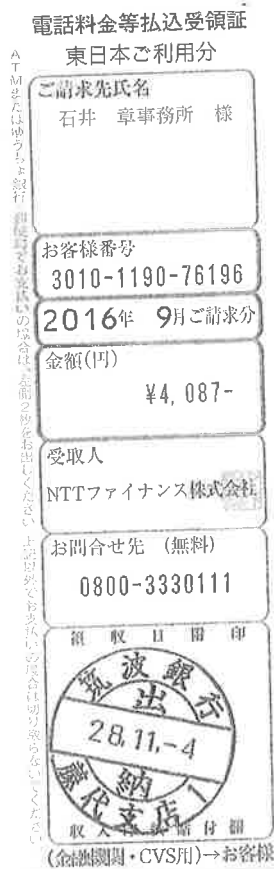 電話料金等払込受領証
東日本ご利用分
ご請求先氏名
石井 章事務所 様
お客様番号
3010-1190-76196
2016年 9月ご請求分
金額(円)
¥4,087-
受取人
NTTファイナンス株式会社
お問合せ先 (無料)
0800-3330111
領収日附印
筑波銀行
出
28.11.-4
納
藤代支店1
(金融機関・CVS用)→お客様
ATMまたはゆうちょ銀行 郵便局でお支払いの場合は、左側2枚をお出しください 上記以外でお支払いの場合は切り取らないでください